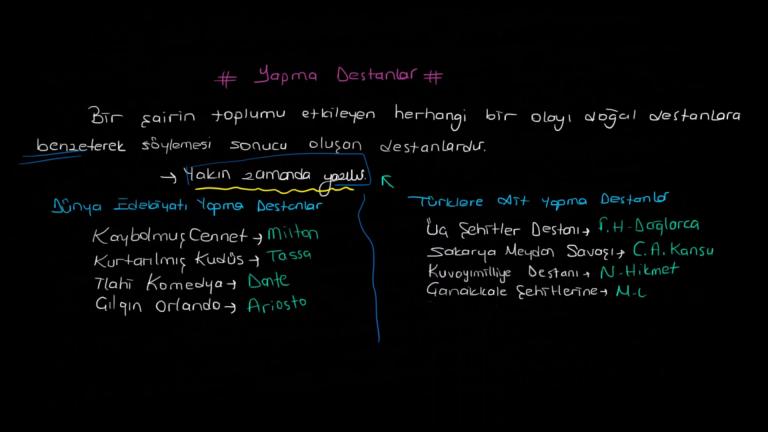 # Yapma Destanlar #
Bir şairin toplumu etkileyen herhangi bir olayı doğal destanlara
benzeterek söylemesi sonucu oluşan destanlardır.
→ Yakın zamanda yazılır.
Dünya Edebiyatı Yapma Destanlar
Kaybolmuş Cennet → Milton
Kurtarılmış Kudüs → Tassa
İlahi Komedya → Dante
Çılgın Orlando → Ariosto
Türklere Ait Yapma Destanlar
Üç Şehitler Destanı → F.H-Dağlarca
Sakarya Meydan Savaşı → C.A.Kansu
Kuvoyimilliye Destanı → N-Hikmet
Çanakkale Şehitlerine → M-